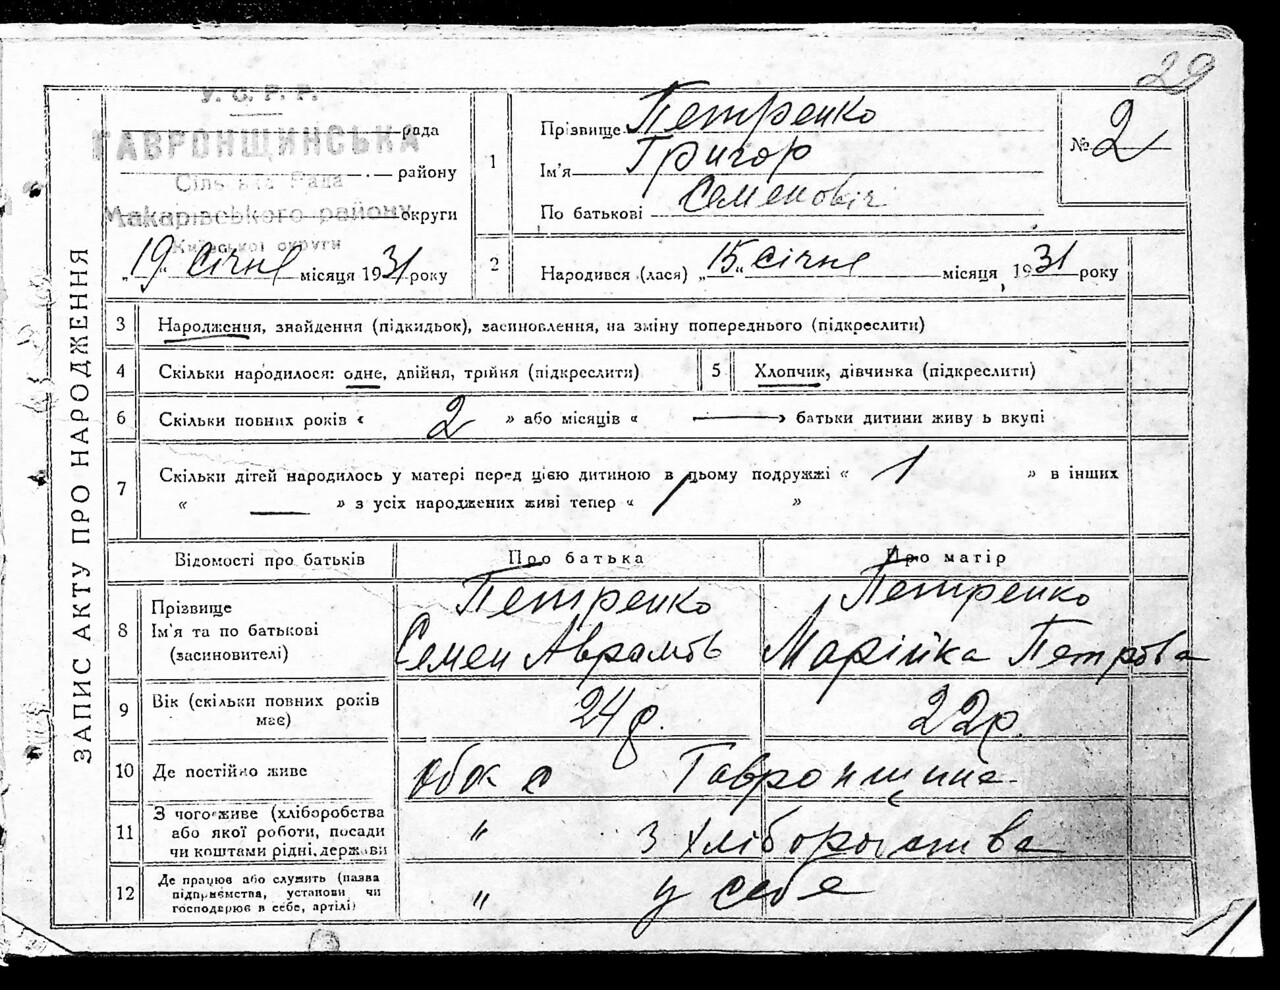 29
У. С. Р. Р.
ГАВРОНЩИНСЬКА рада
Сільська Рада району
Макарівського району округи
Київської округи
„19“ січня місяця 1931 року
1 Прізвище Петренко
Ім'я Григор
По батькові Семеновіч
№ 2
2 Народився (лася) „15“ січня місяця, 1931 року
ЗАПИС АКТУ ПРО НАРОДЖЕННЯ
3 Народження, знайдення (підкидьок), засиновлення, на зміну попереднього (підкреслити)
4 Скільки народилося: одне, двійня, трійня (підкреслити)
5 Хлопчик, дівчинка (підкреслити)
6 Скільки повних років « 2 » або місяців « — » батьки дитини живуть вкупі
7 Скільки дітей народилось у матері перед цією дитиною в цьому подружжі « 1 » в інших
« — » з усіх народжених живі тепер « 1 »
Відомості про батьків Про батька Про матір
8 Прізвище Петренко Петренко
Ім'я та по батькові Семен Аврамов Марійка Петрова
(засиновителі)
9 Вік (скільки повних років має) 24 р. 22 р.
10 Де постійно живе обоє с Гавронщина
11 З чого живе (хліборобства
або якої роботи, посади " З Хліборобства
чи коштами рідні, держави
12 Де працює або служить (назва
підприємства, установи чи " у себе
господарює в себе, артілі)